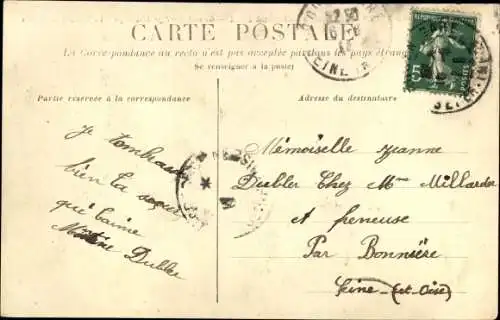 CARTE POSTALE
La Correspondance au recto n'est pas acceptée par tous les pays étrang
(Se renseigner à la poste)
Partie réservée à la correspondance
Adresse du destinataire
je tombrasse
bien ta soeur
qui t'aime
Dubler
Mémoiselle Jeanne
Dubler Chez Mme Millardon
A freneuse
Par Bonnière
Seine (et-Oise)
REPUBLIQUE FRANÇAISE
5